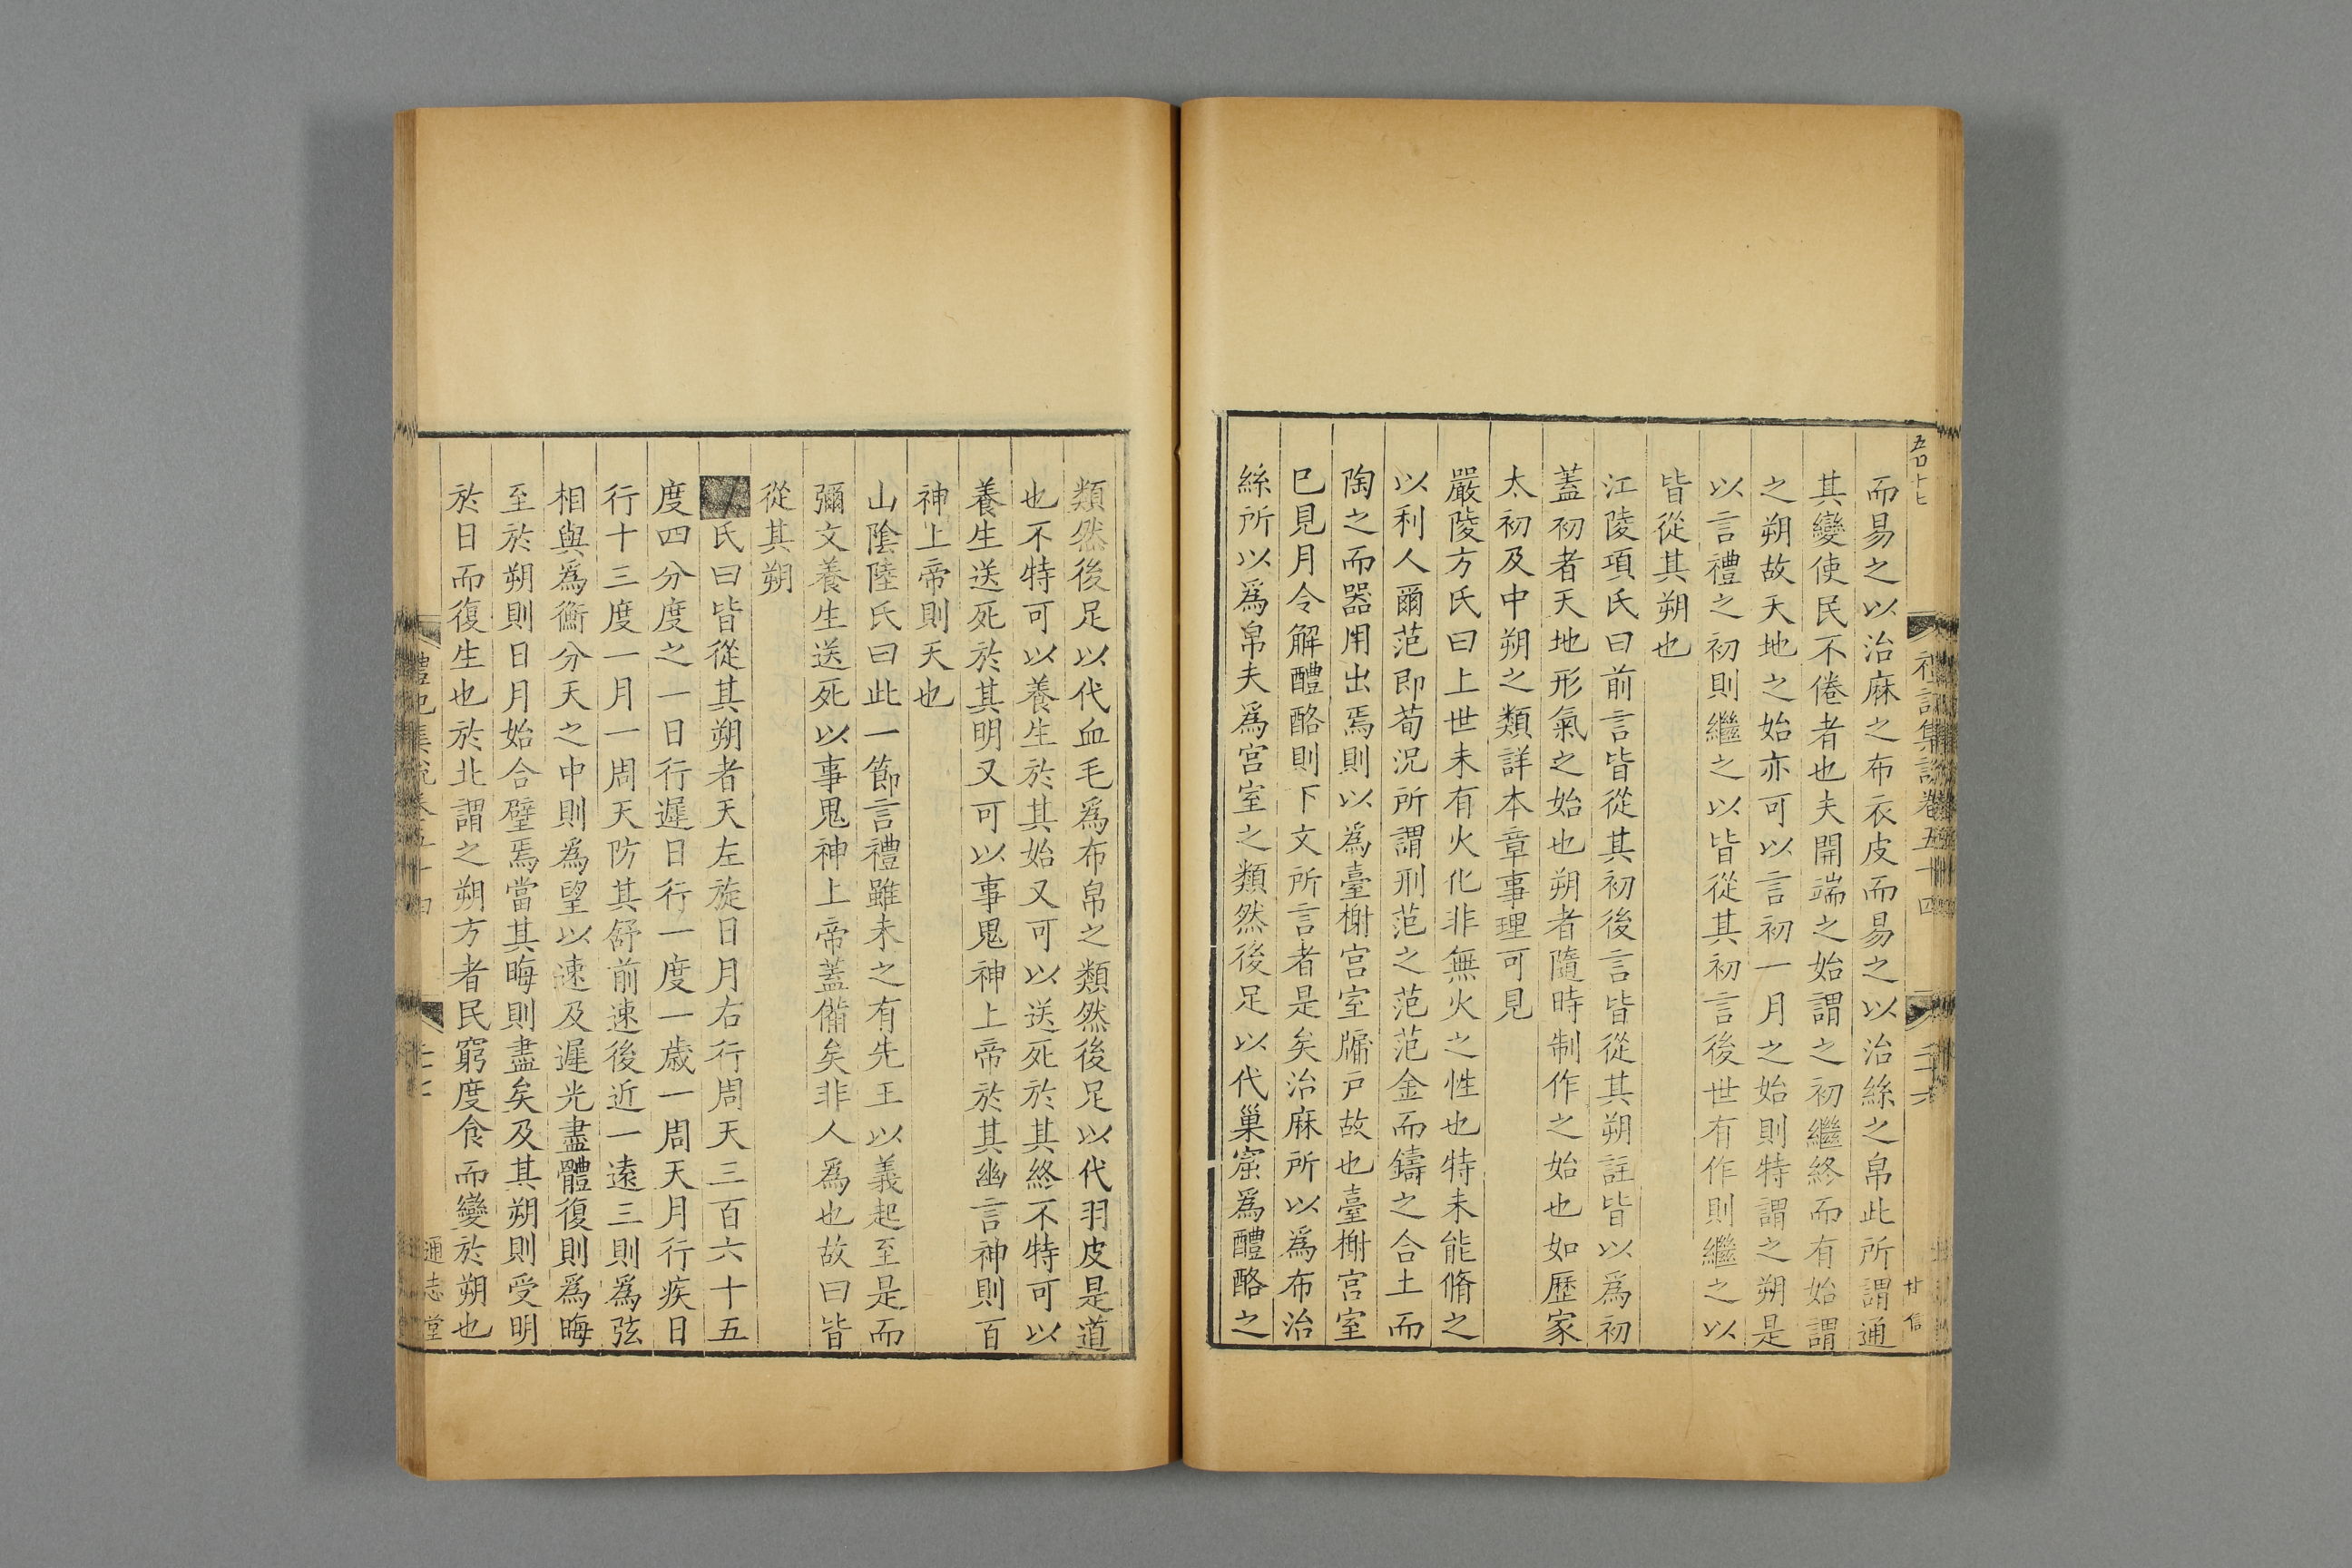 五百十七
禮記集說卷五十四
甘信
而易之以治麻之布衣皮而易之以治絲之帛此所謂通
其變使民不倦者也夫開端之始謂之初繼終而有始謂
之朔故天地之始亦可以言初一月之始則特謂之朔是
以言禮之初則繼之以皆從其初言後世有作則繼之以
皆從其朔也
江陵項氏曰前言皆從其初後言皆從其朔註皆以爲初
蓋初者天地形氣之始也朔者隨時制作之始也如歷家
太初及中朔之類詳本章事理可見
嚴陵方氏曰上世未有火化非無火之性也特未能脩之
以利人爾范即荀況所謂刑范之范范金而鑄之合土而
陶之而器用出焉則以爲臺榭宮室牖戸故也臺榭宮室
巳見月令解醴酪則下文所言者是矣治麻所以爲布治
絲所以爲帛夫爲宮室之類然後足以代巢窟爲醴酪之
類然後足以代血毛爲布帛之類然後足以代羽皮是道
也不特可以養生於其始又可以送死於其終不特可以
養生送死於其明又可以事鬼神上帝於其幽言神則百
神上帝則天也
山陰陸氏曰此一節言禮雖未之有先王以義起至是而
彌文養生送死以事鬼神上帝蓋備矣非人爲也故曰皆
從其朔
氏曰皆從其朔者天左旋日月右行周天三百六十五
度四分度之一日行遲日行一度一歲一周天月行疾日
行十三度一月一周天防其舒前速後近一遠三則爲弦
相與爲衡分天之中則爲望以速及遲光盡體復則爲晦
至於朔則日月始合璧焉當其晦則盡矣及其朔則受明
於日而復生也於北謂之朔方者民窮度食而變於朔也
禮記集說卷五十四
通志堂